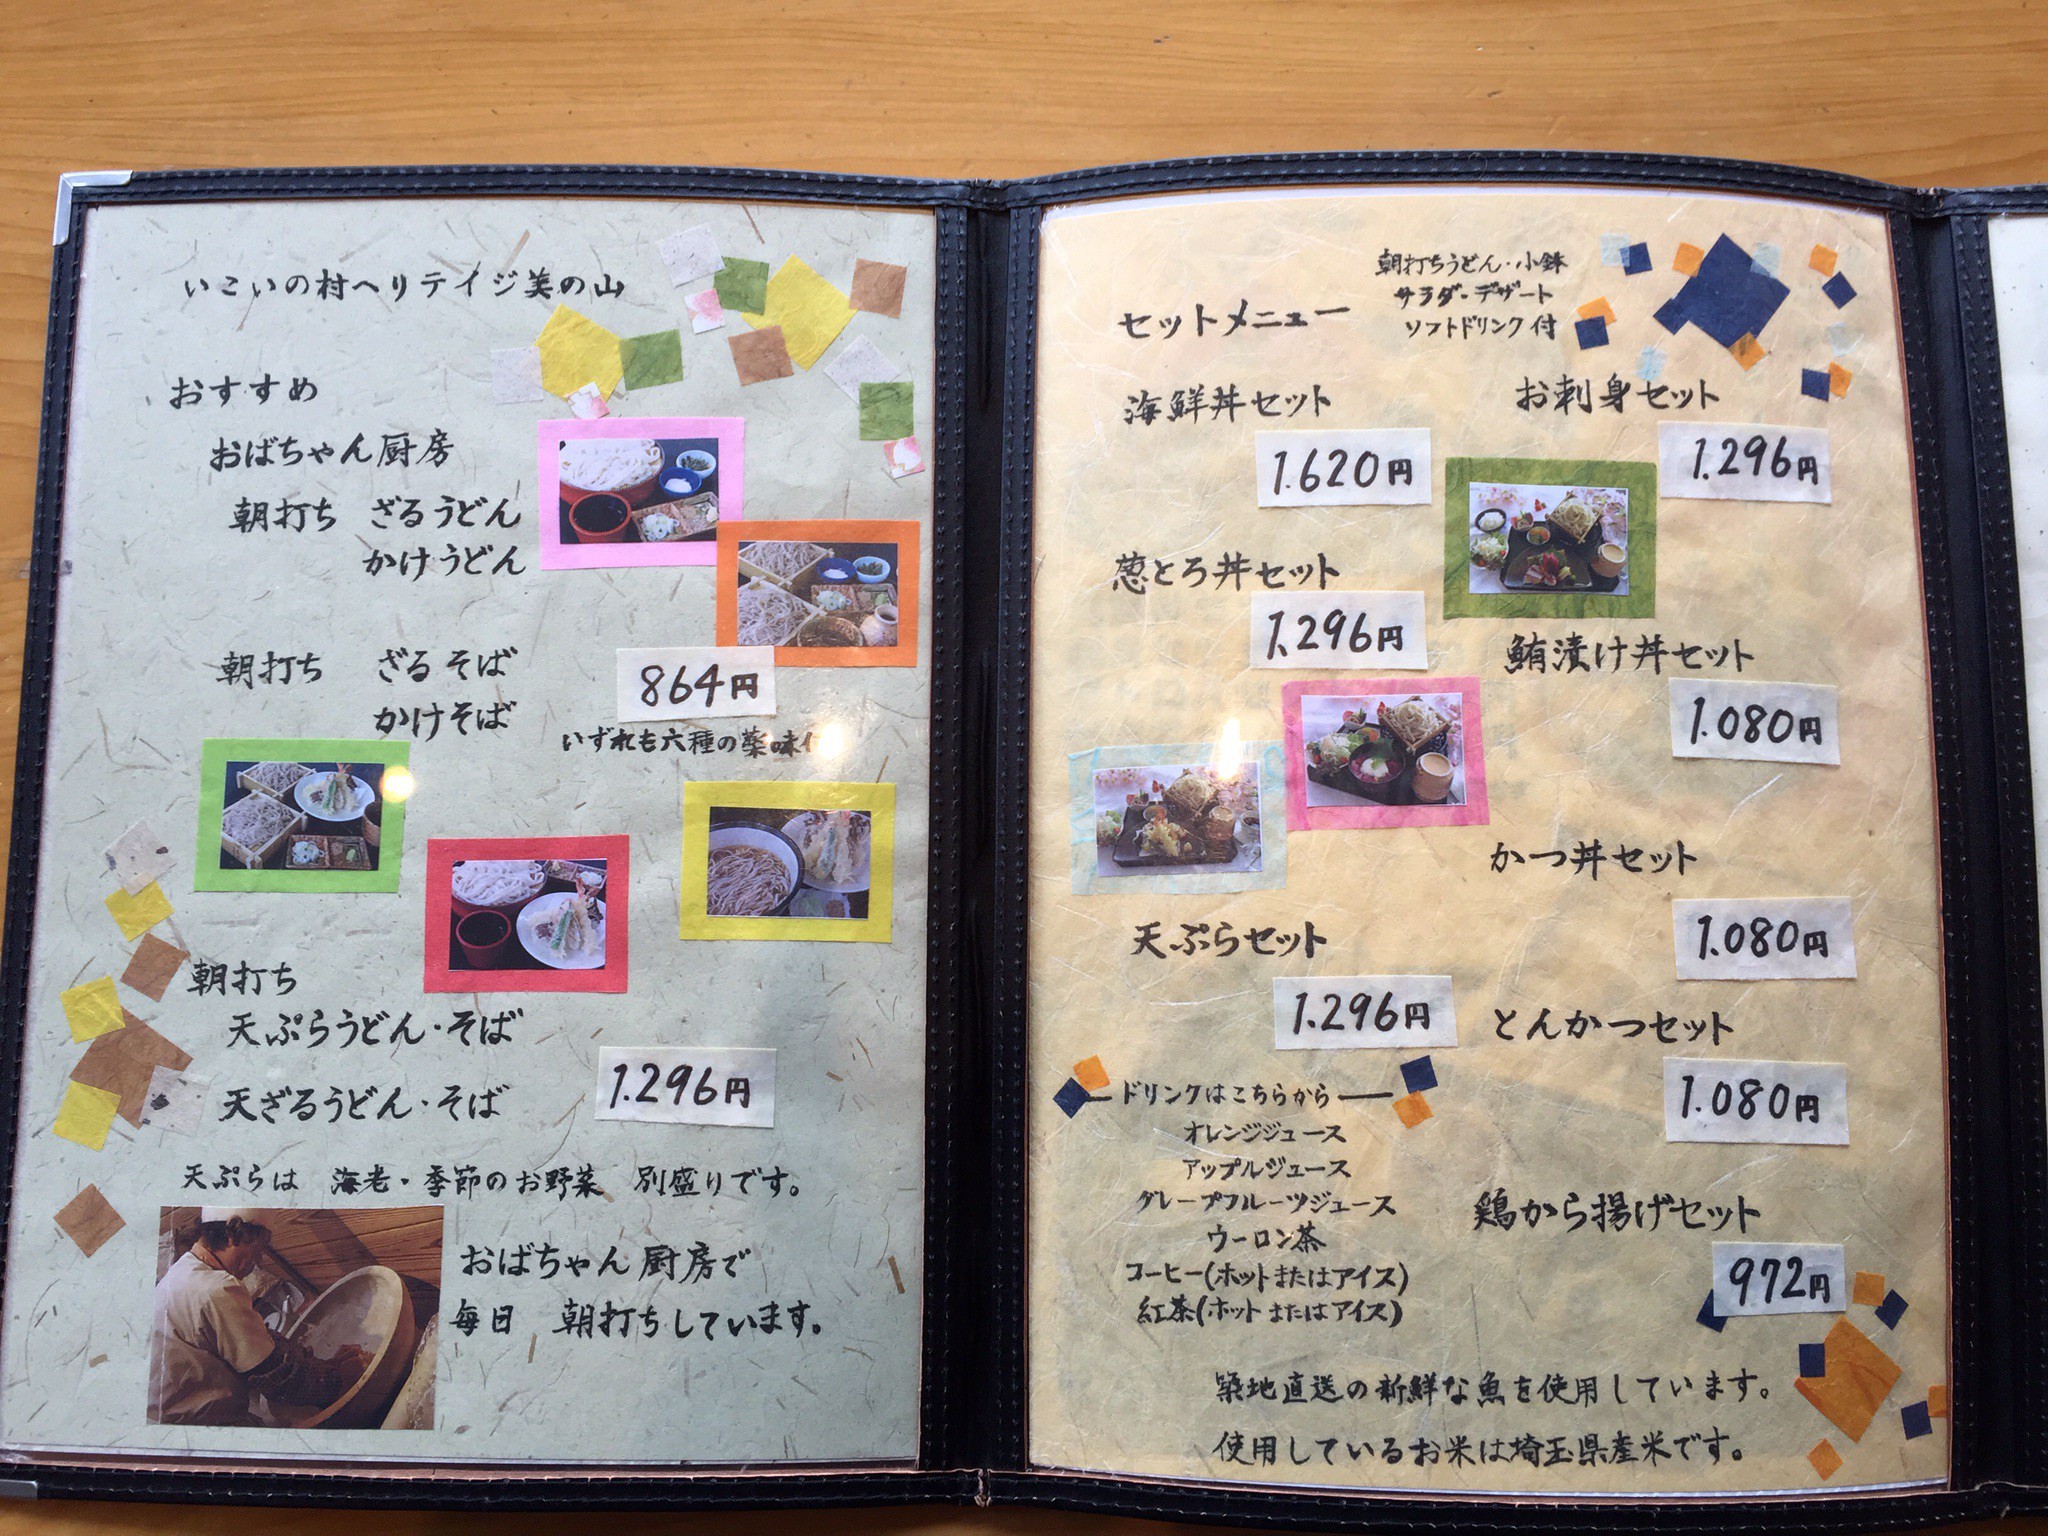 いこいの村ヘリテイジ美の山
おすすめ
おばちゃん厨房
朝打ち ざるうどん
かけうどん
朝打ち ざるそば
かけそば
864円
いずれも六種の薬味
朝打ち
天ぷらうどん・そば
天ざるうどん・そば
1.296円
天ぷらは 海老・季節のお野菜 別盛りです。
おばちゃん厨房で
毎日 朝打ちしています。
セットメニュー
朝打ちうどん・小鉢
サラダ・デザート
ソフトドリンク付
海鮮丼セット
1.620円
お刺身セット
1.296円
葱とろ丼セット
1.296円
鮪漬け丼セット
1.080円
かつ丼セット
1.080円
天ぷらセット
1.296円
とんかつセット
1.080円
ドリンクはこちらから
オレンジジュース
アップルジュース
グレープフルーツジュース
ウーロン茶
コーヒー(ホットまたはアイス)
紅茶(ホットまたはアイス)
鶏から揚げセット
972円
築地直送の新鮮な魚を使用しています。
使用しているお米は埼玉県産米です。